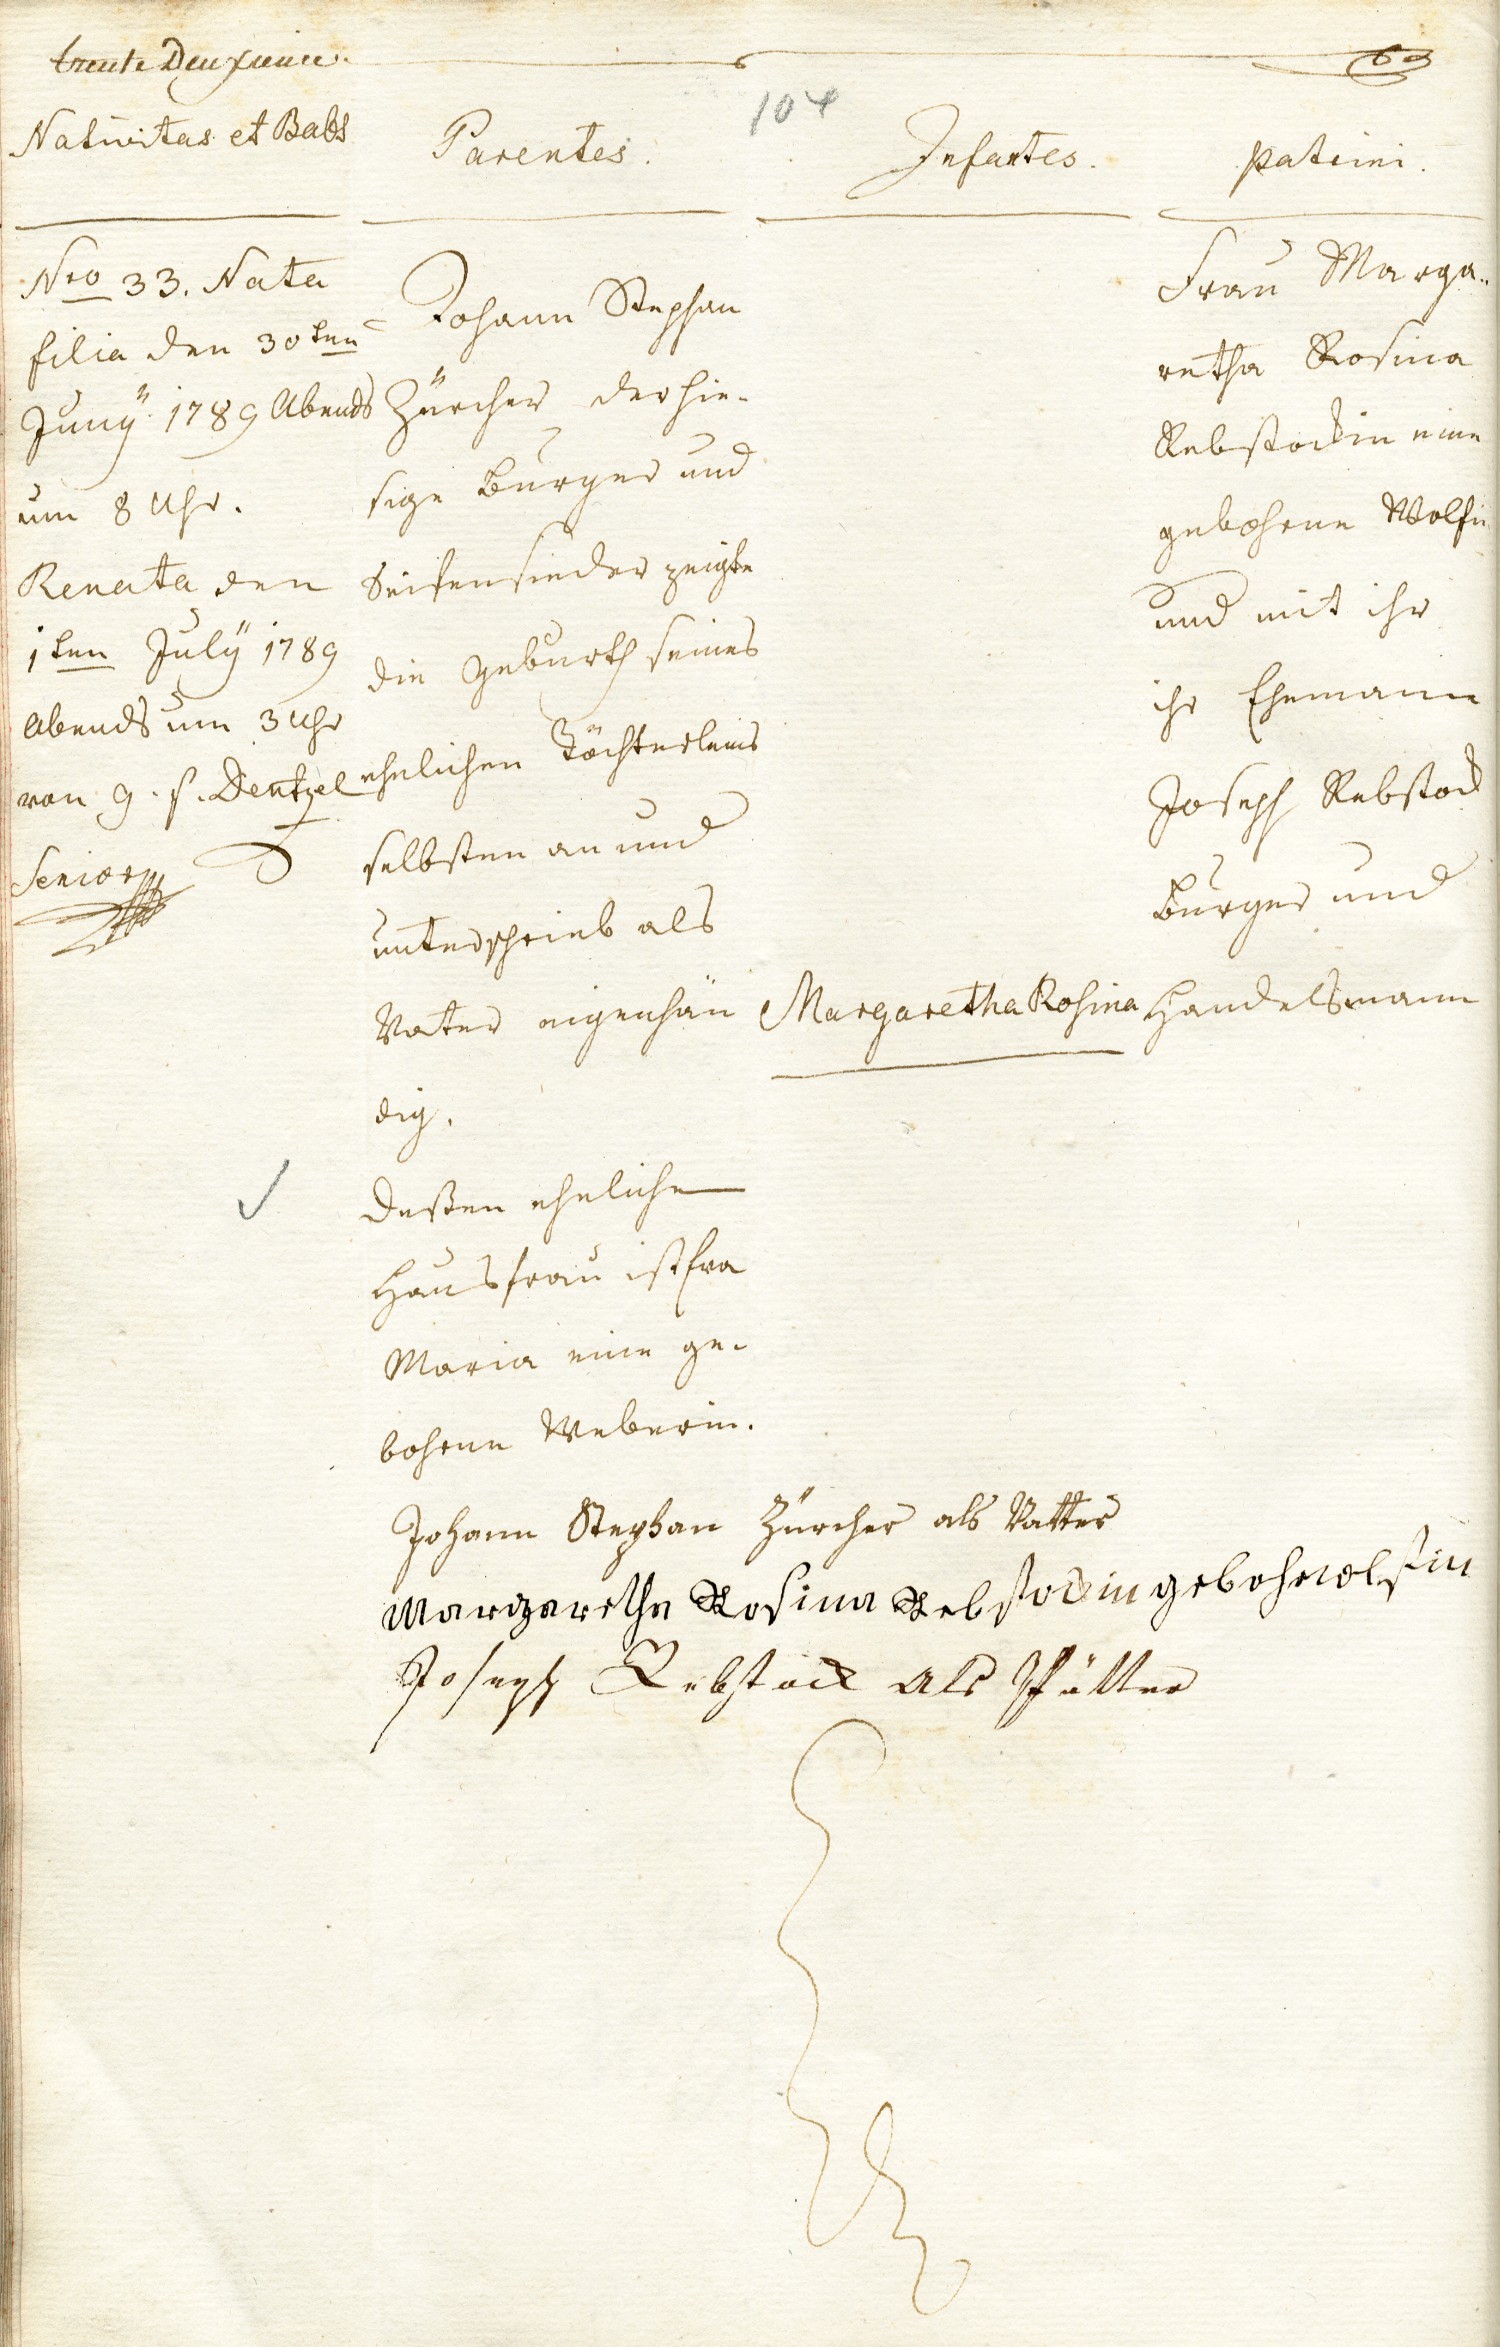 trente Deuxieme.
63
104
Nativitas et Babt
Parentes.
Infantes.
Patrini.
Nro 33. Nata
filia den 30ten
Junÿ 1789 Abends
um 8 Uhr.
Renata den
1ten Julÿ 1789
Abends um 3 Uhr
von g. f. Dentzel
Senior
Johann Stephan
Zürcher der hie-
sige Burger und
Seifensieder zeigte
die Geburth seines
ehelichen Töchterleins
selbsten an und
unterschrieb als
Vater eigenhän
dig.
Deßen eheliche
Hausfrau ist fra
Maria eine ge-
bohrne Weberin.
Margaretha Rosina
Frau Marga-
retha Rosina
Rebstockin eine
gebohrne Wolfin
und mit ihr
ihr Ehemann
Joseph Rebstock
Burger und
Handelsmann
Johann Stephan Zürcher als Vatter
Margaretha Rosina Rebstockin gebohrn wolfin
Joseph Rebstock als Pfätter